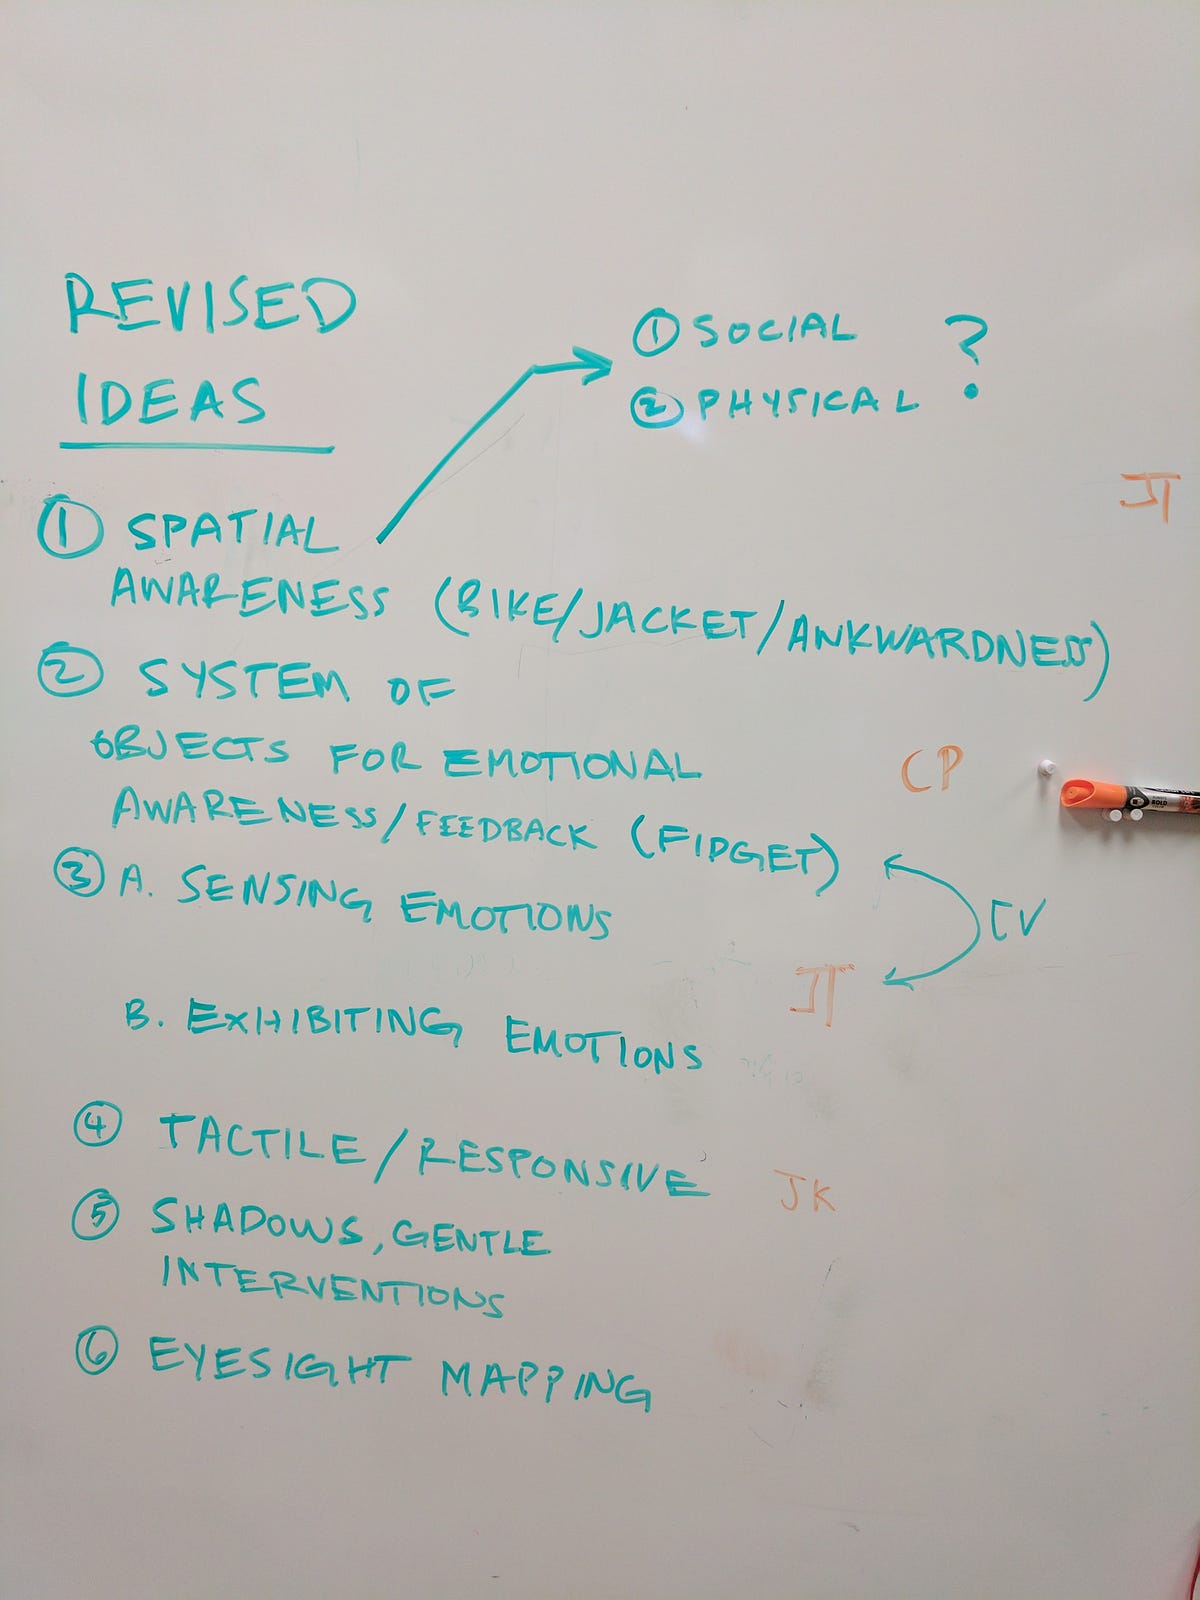 REVISED
IDEAS
① SOCIAL ?
② PHYSICAL
JT
① SPATIAL
AWARENESS (BIKE/JACKET/ANKWARDNESS)
② SYSTEM OF
OBJECTS FOR EMOTIONAL
AWARENESS/FEEDBACK (FIDGET)
CP
③ A. SENSING EMOTIONS
CV
JT
B. EXHIBITING EMOTIONS
④ TACTILE/RESPONSIVE
JK
⑤ SHADOWS, GENTLE
INTERVENTIONS
⑥ EYESIGHT MAPPING
BOLD